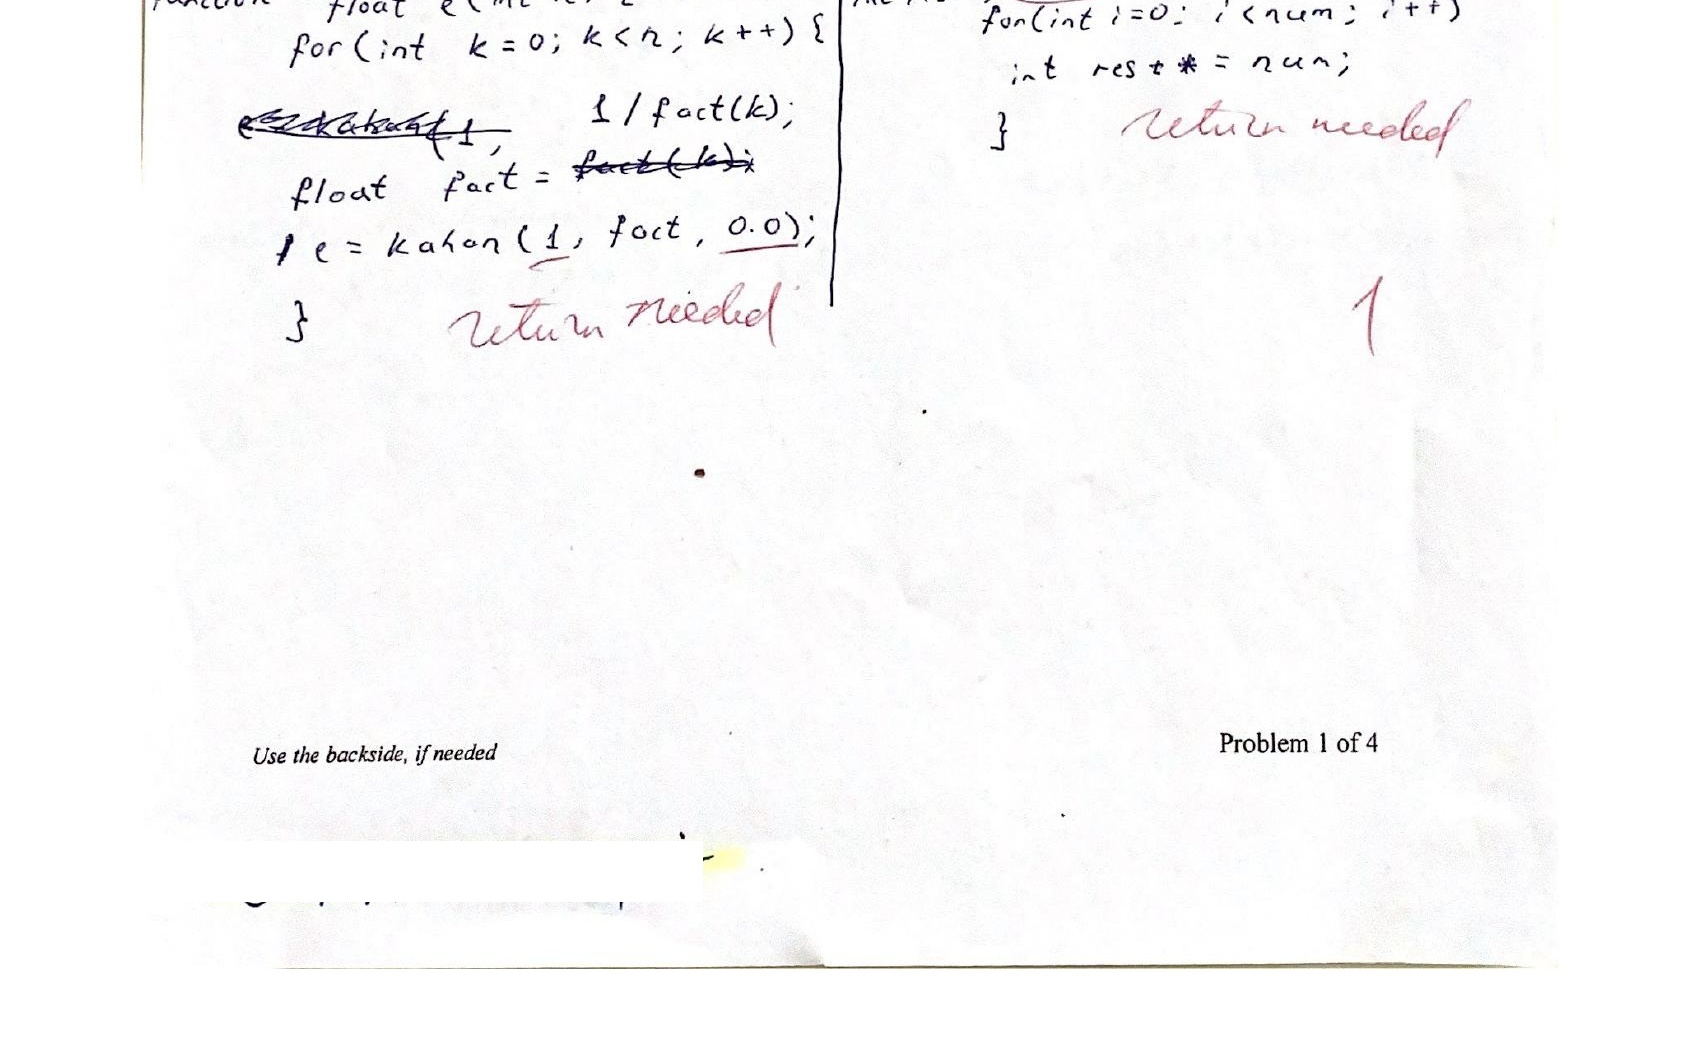 float e(int
for(int k=0; k<n; k++) {
1/fact(k);
float fact = fact(k);
e = kahan(1, fact, 0.0);
}
return needed
for(int i=0; i<num; i++)
int res *= num;
}
return needed
1
Use the backside, if needed
Problem 1 of 4